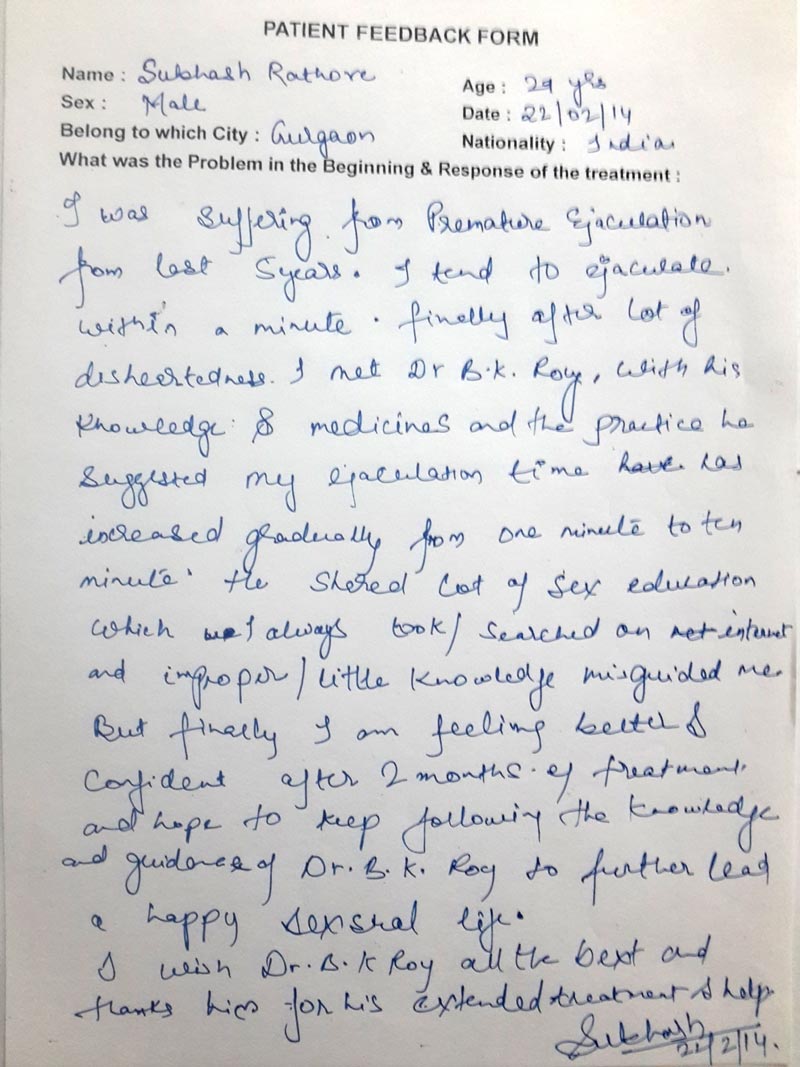 PATIENT FEEDBACK FORM
Name : Subhash Rathore
Age : 29 yrs
Sex : Male
Date : 22/02/14
Belong to which City : Gurgaon
Nationality : India
What was the Problem in the Beginning & Response of the treatment :
I was suffering from Premature Ejaculation
from last 5years. I tend to ejaculate.
within a minute. finally after lot of
disheartedness. I met Dr B.K. Roy, with his
Knowledge & medicines and the practice he
suggested my ejaculation time have has
increased gradually from one minute to ten
minute. He Shared lot of sex education
which I always took/ searched on net internet
and improper/ little knowledge misguided me.
But finally I am feeling better &
Confident after 2 months of treatment.
and hope to keep following the knowledge
and guidance of Dr. B. K. Roy to further lead
a happy sexsual life.
I wish Dr. B. K Roy all the best and
thanks him for his extended treatment & help.
Subhash
22/2/14.